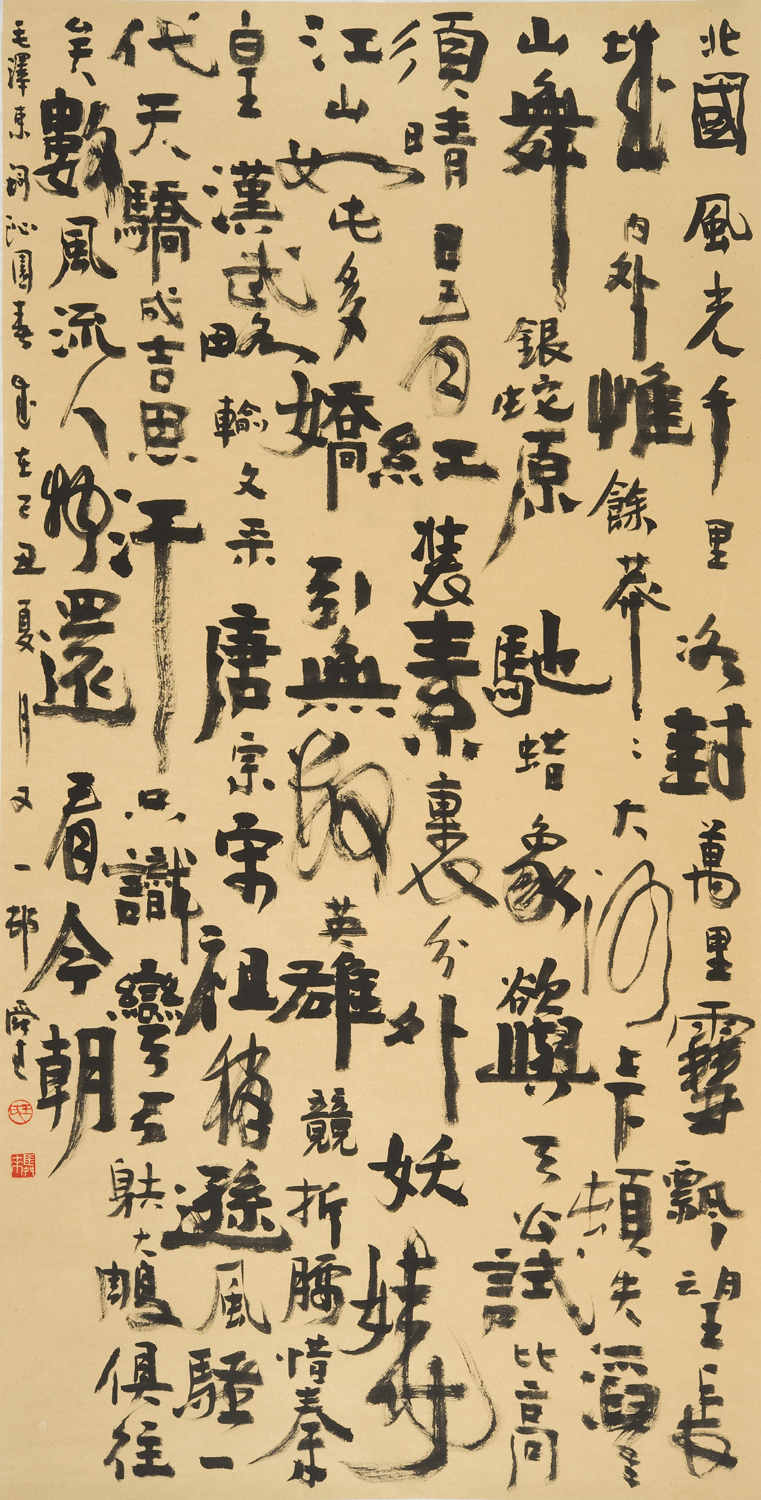 北國風光千里冰封萬里雪飄望長
城內外惟餘莽〻大河上下頓失滔〻
山舞銀蛇原馳蜡象欲與天公試比高
須晴日看紅裝素裹分外妖嬈
江山如此多嬌引無數英雄競折腰惜秦
皇漢武略輸文采唐宗宋祖稍遜風騷一
代天驕成吉思汗只識彎弓射大鵰俱往
矣數風流人物還看今朝
毛澤東詞沁園春歲在己丑夏月又一邨